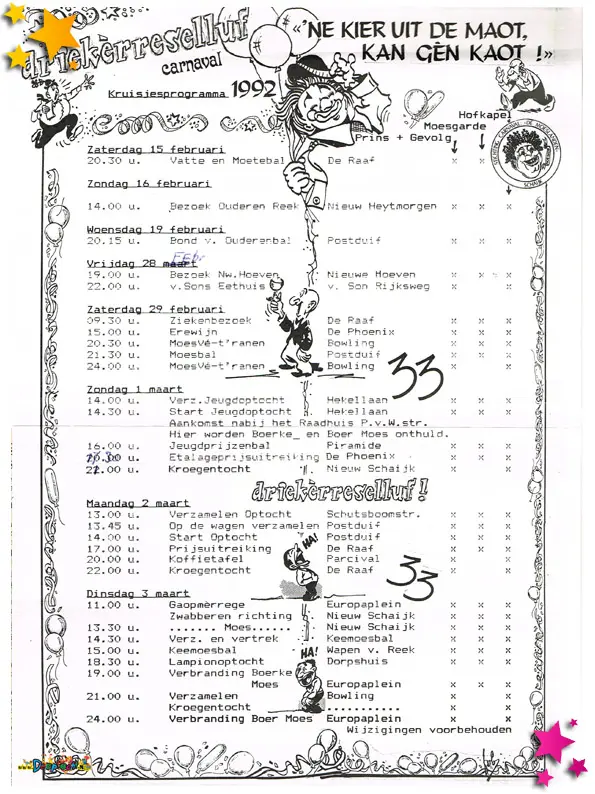 driekèrreselluf
carnaval
«'NE KIER UIT DE MAOT,
KAN GÈN KAOT !»
Kruisjesprogramma 1992
Hofkapel
Moesgarde
Prins + Gevolg
Zaterdag 15 februari
20.30 u. Vatte en Moetebal De Raaf x x
Zondag 16 februari
14.00 u. Bezoek Ouderen Reek Nieuw Heytmorgen x x x
Woensdag 19 februari
20.15 u. Bond v. Ouderenbal Postduif x x x
Feb.
Vrijdag 28 maart
19.00 u. Bezoek Nw.Hoeven Nieuwe Hoeven x x x
22.00 u. v.Sons Eethuis v. Son Rijksweg x x x
Zaterdag 29 februari
09.30 u. Ziekenbezoek De Raaf x x x
15.00 u. Erewijn De Phoenix x x x
20.30 u. MoesVé-t'ranen Bowling x x x
21.30 u. Moesbal Postduif x x x
24.00 u. MoesVé-t'ranen Bowling x x x
33
Zondag 1 maart
14.00 u. Verz.Jeugdoptocht Hekellaan x x x
14.30 u. Start Jeugdoptocht Hekellaan x x x
Aankomst nabij het Raadhuis P.v.W.str.
Hier worden Boerke_ en Boer Moes onthuld.
16.00 u. Jeugdprijzenbal Piramide x x x
u. Etalageprijsuitreiking De Phoenix x x x
u. Kroegentocht Nieuw Schaijk x x x
driekèrreselluf!
Maandag 2 maart
13.00 u. Verzamelen Optocht Schutsboomstr. x x x
13.45 u. Op de wagen verzamelen Postduif x x x
14.00 u. Start Optocht Postduif x x x
HA!
17.00 u. Prijsuitreiking De Raaf x x x
20.00 u. Koffietafel Parcival x x
22.00 u. Kroegentocht De Raaf x x x
33
Dinsdag 3 maart
11.00 u. Gaopmèrrege Europaplein x x x
Zwabberen richting Nieuw Schaijk x x x
13.30 u. ....... Moes...... Nieuw Schaijk x x x
14.30 u. Verz. en vertrek Keemoesbal x x x
15.00 u. Keemoesbal Wapen v. Reek x x x
HA!
18.30 u. Lampionoptocht Dorpshuis x x x
19.00 u. Verbranding Boerke
Moes Europaplein x x x
21.00 u. Verzamelen Bowling x x
Kroegentocht ........... x x
24.00 u. Verbranding Boer Moes Europaplein x x
Wijzigingen voorbehouden